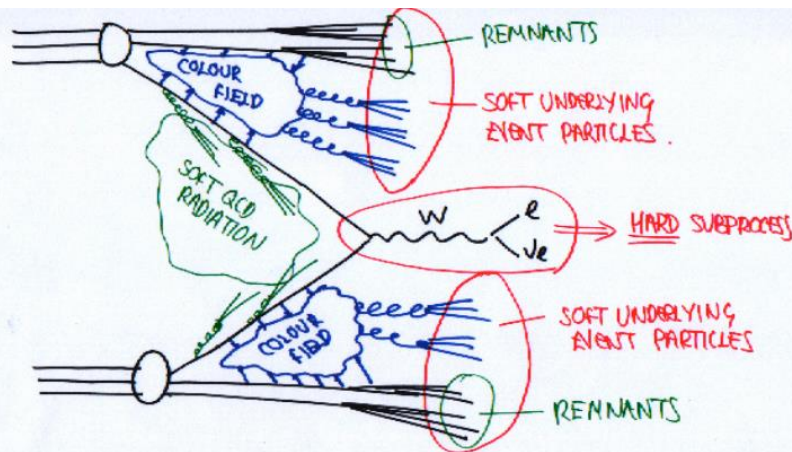 REMNANTS
COLOUR
FIELD
SOFT UNDERLYING
EVENT PARTICLES.
SOFT QCD
RADIATION
W
e
νe
HARD SUBPROCESS
COLOUR
FIELD
SOFT UNDERLYING
EVENT PARTICLES
REMNANTS